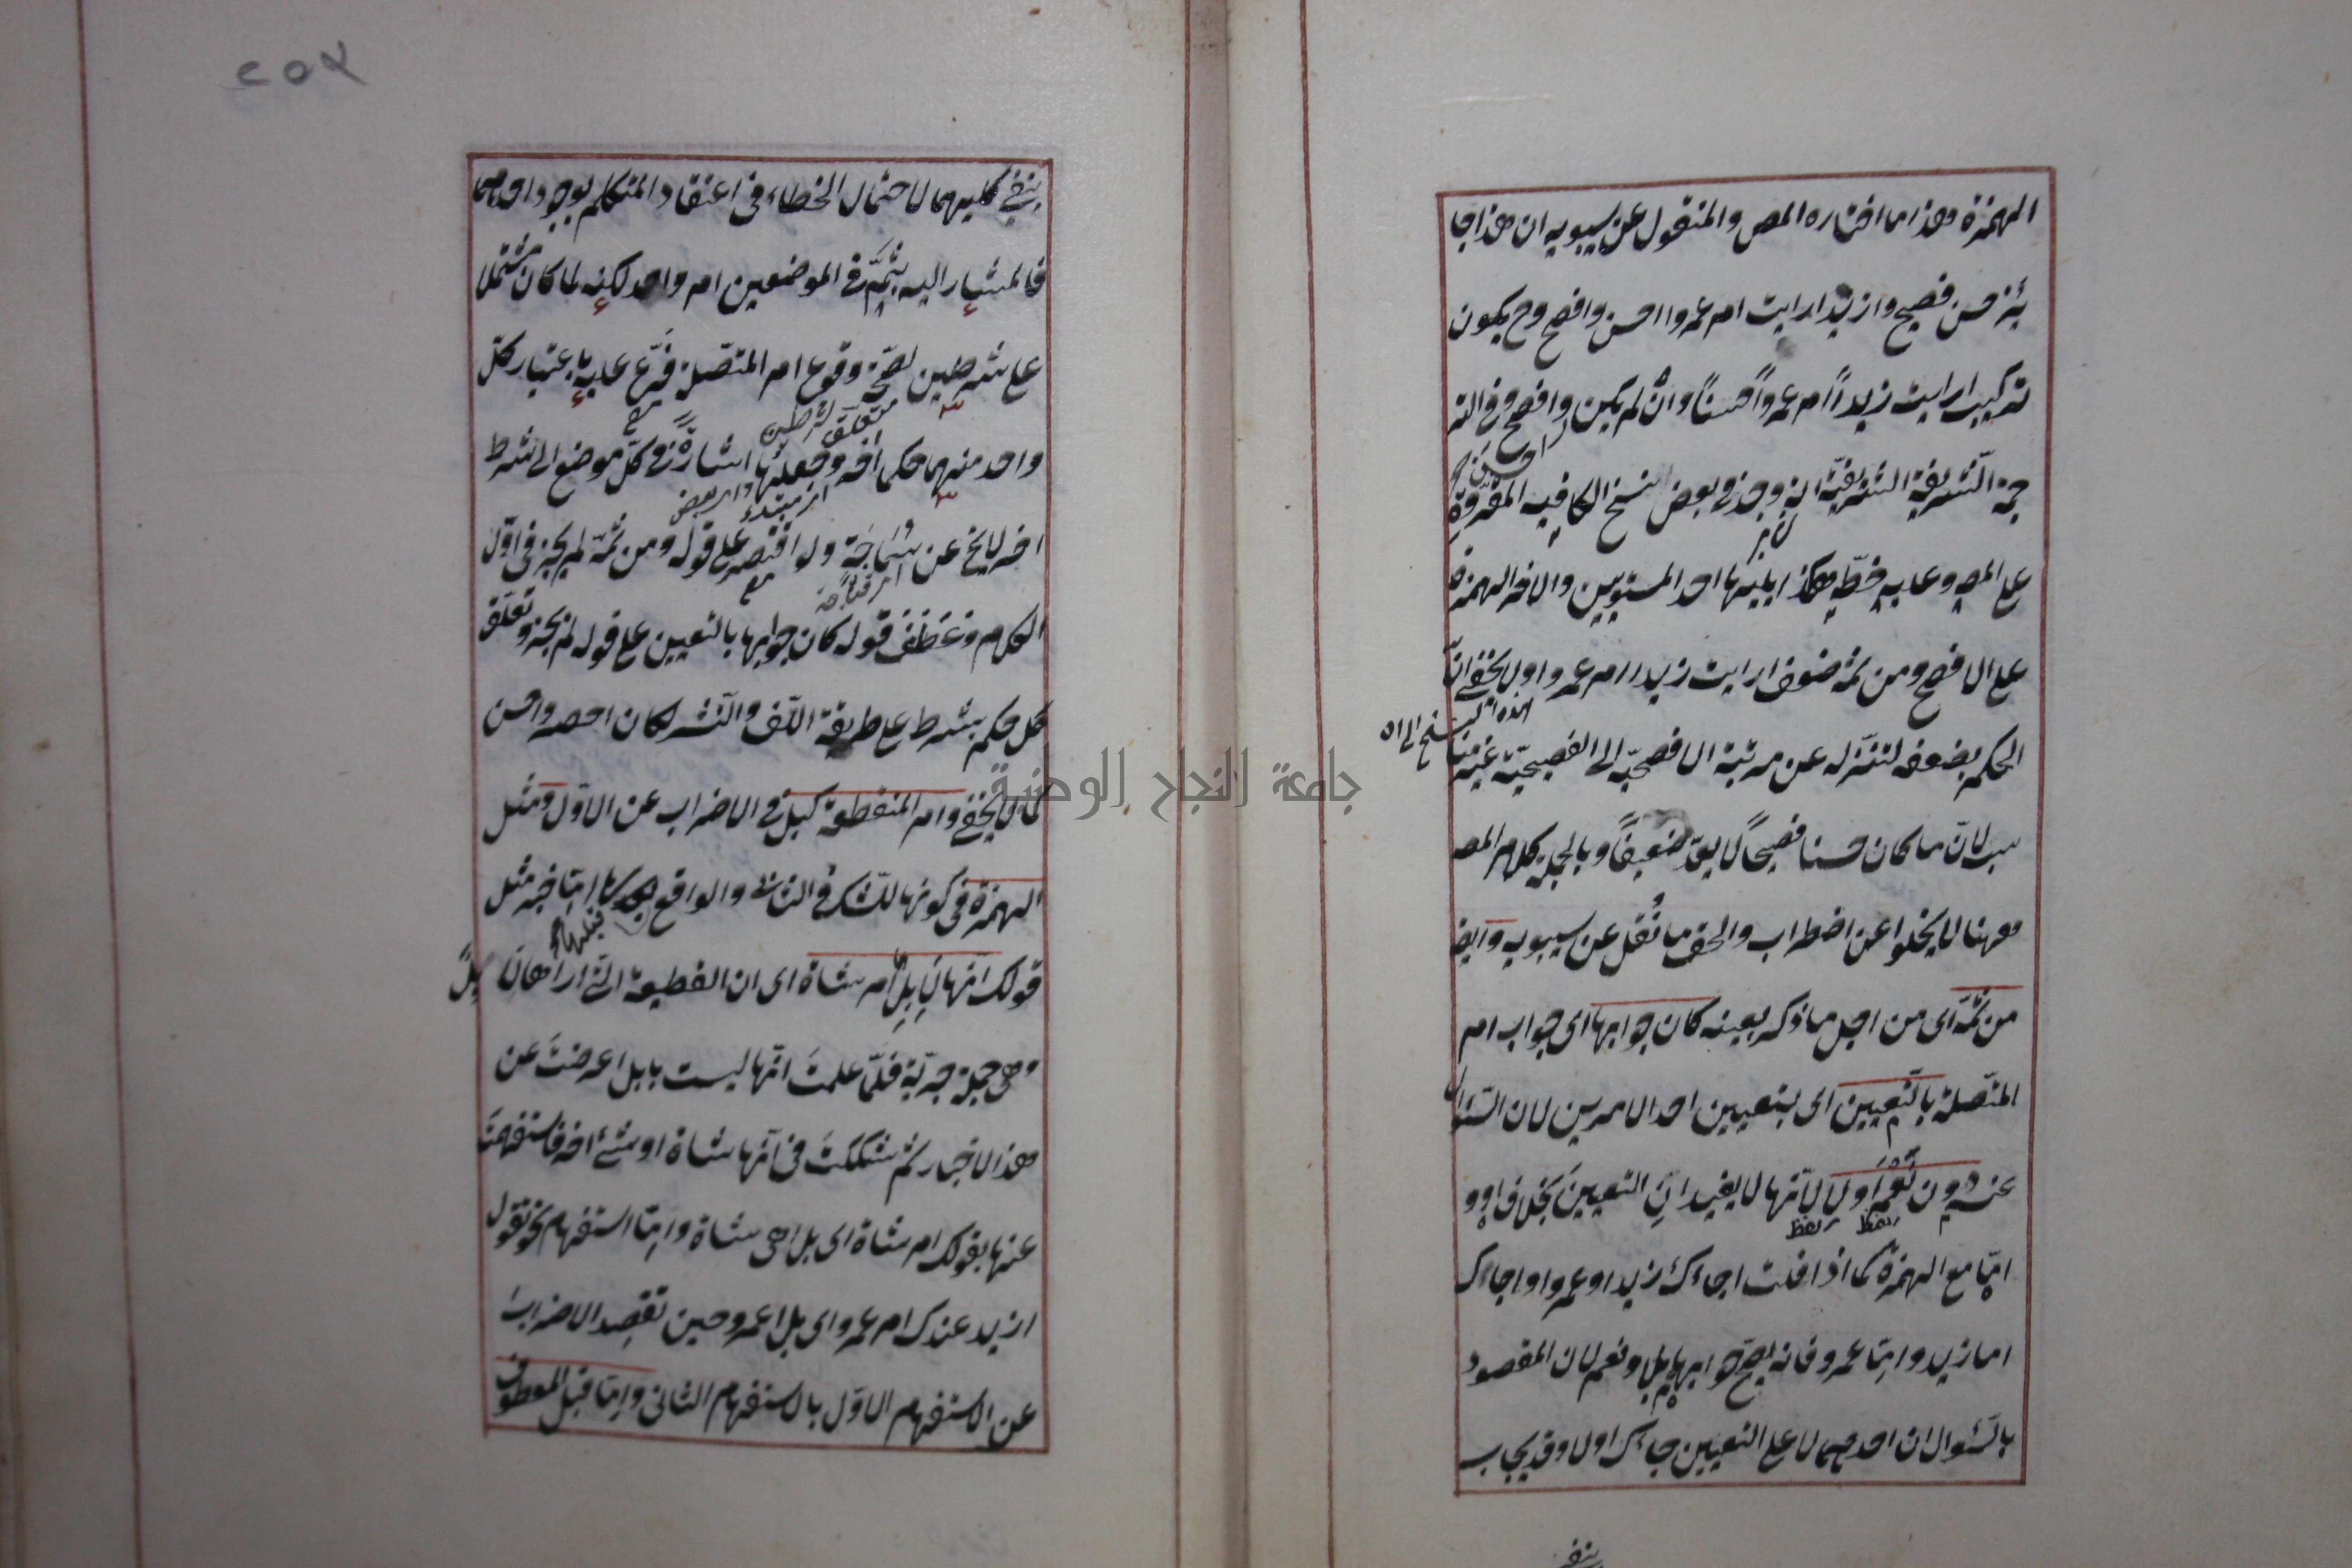 الهمزة وهذا ما اختاره المص والمنقول عن سيبويه ان هذا جا
ئز حسن فصيح وازيدا رايت ام عمروا احسن وافصح وح يكون
تركيب ارايت زيداً ام عمرواً حسناً وان لم يكن وافصح وفى التر
احسن
جمة الشريفية الشريفية انه وجد فى بعض نسخ الكافيه المقروة
على المص وعليه خطه هكذا يليها احد المستويين والاخر الهمزة
على الافصح ومن ثمه ضعف ارايت زيدا ام عمروا ولا يخفى ان
هذه النسخ
الحكم بضعفه لتنزله عن مرتبة الافصحية الى الفصيحية غير منا
سب لان ما كان حسنا فصيحاً لا يعد ضعيفاً وبالجملة كلام المص
ههنا لا يخلوا عن اضطراب والحق ما نُقل عن سيبويه وايضا
من ثمَّه اى من اجل ما ذكر بعينه كان جوابها اى جواب ام
المتّصلة بالتّعيين اى بتعيين احد الامرين لان السّئوال
عنه دون نَعَم اولا لانّها لا يفيدان التعيين بخلاف او و
لفظ لفظ
امّا مع الهمزة كما اذا قلت اجاءك زيد او عمرو او اجاءك
اما زيد وامّا عمرو فانه يصح جوابها بلا ونعم لان المقصود
بالسّئوال ان احدهما لا على التعيين جاءك اولا وقد يجاب
بنفى
٢٥٨
بنفى كليهما لاحتمال الخطاء فى اعتقاد المتكلم بوجود احدهما
فالمشار اليه بثمَّه فى الموضعين امر واحد لكنه لما كان مشتملا
على شرطين لصحّة وقوع ام المتصّلة فرّع عليه باعتبار كلّ
متعلق لشرطين
واحد منهما حكما اخر وجعلها اشارةً فى كلّ موضع الى شرط
اخر لا يخ عن سَماجَة ولو اقتصر على قوله ومن ثمّه لم يجز فى اوّل
الكلام وعَطَفَ قوله كان جوابها بالتعيين على قوله لم يجز وتعلّق
كل حكم بشرط على طريقة اللّف والنّشر لكان اخصر واحسن
كما لا يخفى وام المنقطعة كبل فى الاضراب عن الاوّل ومثل
الهمزة فى كونها للشّك فى الثانى والواقع قبلها امّا خبر مثل
قولك انّها لَاِبِلٌ ام شاة اى ان القطيعة الّتى اراها لَاِبِلٌ
وهى جملة خبريّة فلمّا علمتَ انّها ليست بابل اعرضتَ عن
هذا الاخبار ثم شككتَ فى انّها شاة او شئ اخر فاستفهمتَ
عنها بقولك ام شاة اى بل اهى شاة وامّا استفهام نحو تقول
ازيد عندك ام عمرو اى بل اعمرو حين تقصد الاضراب
عن الاستفهام الاوّل بالاستفهام الثانى وامّا قبل المعطوف
جامعة النجاح الوطنية